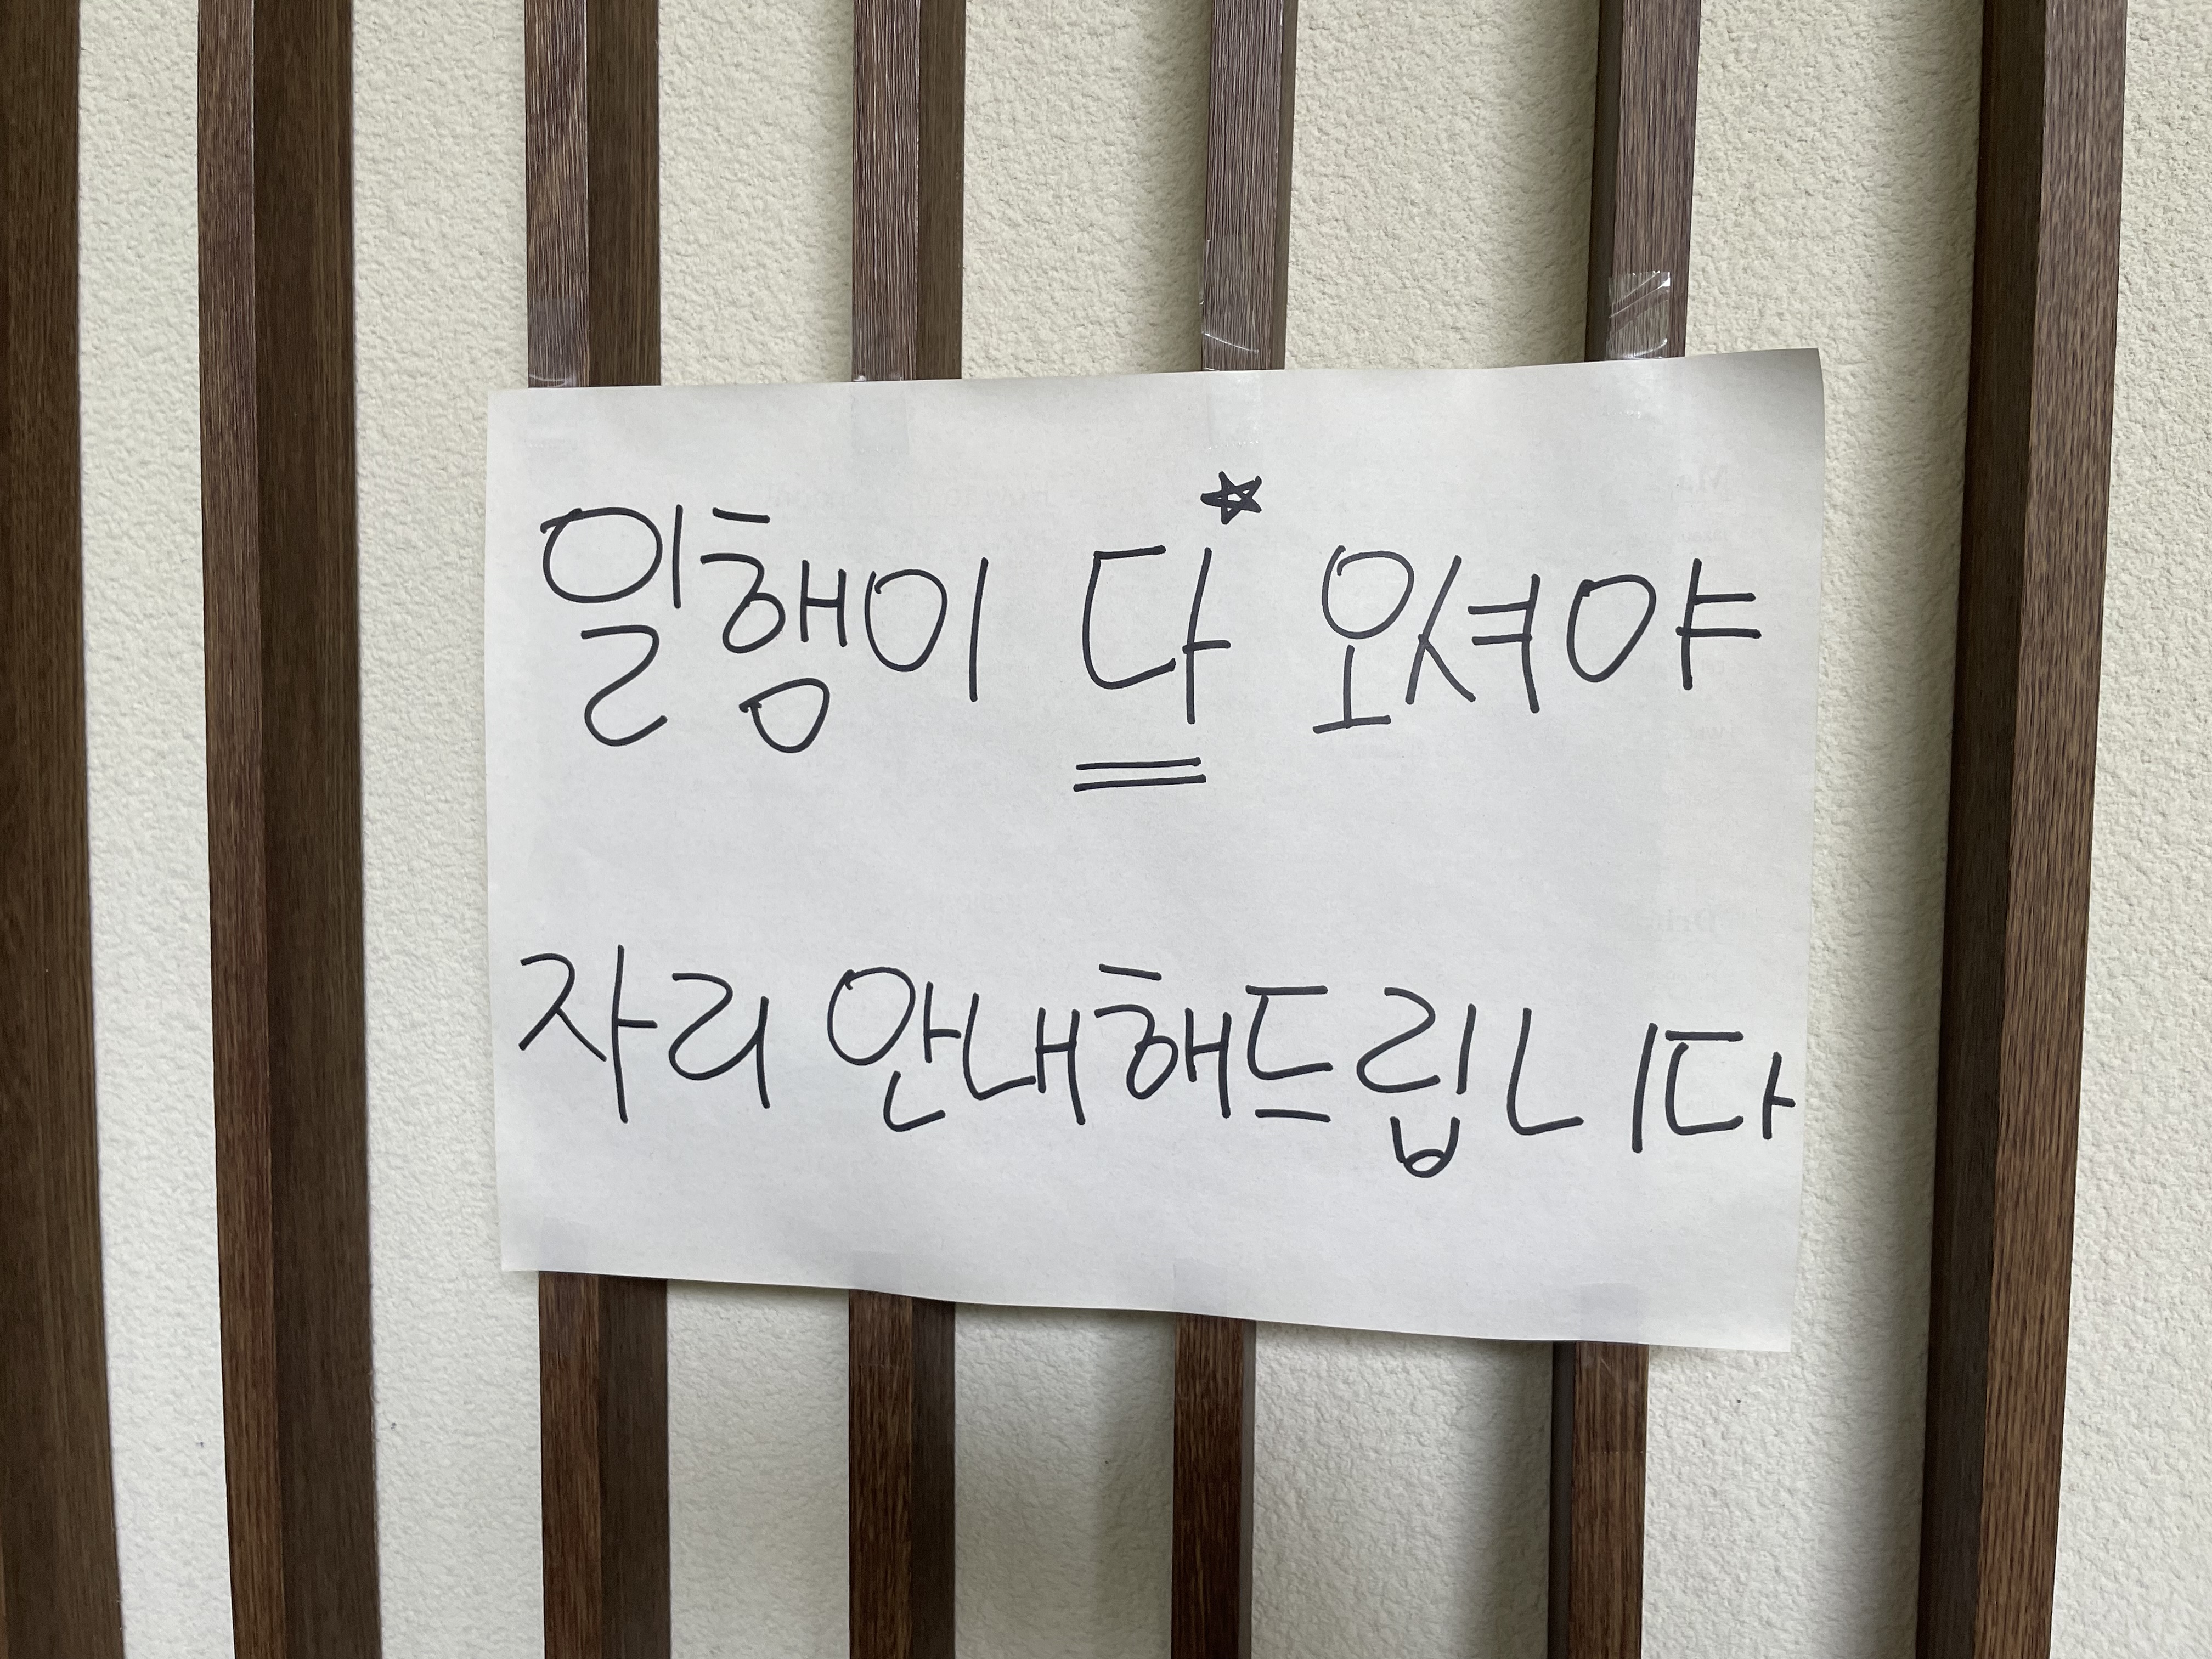 일행이 다 오셔야
자리 안내해드립니다